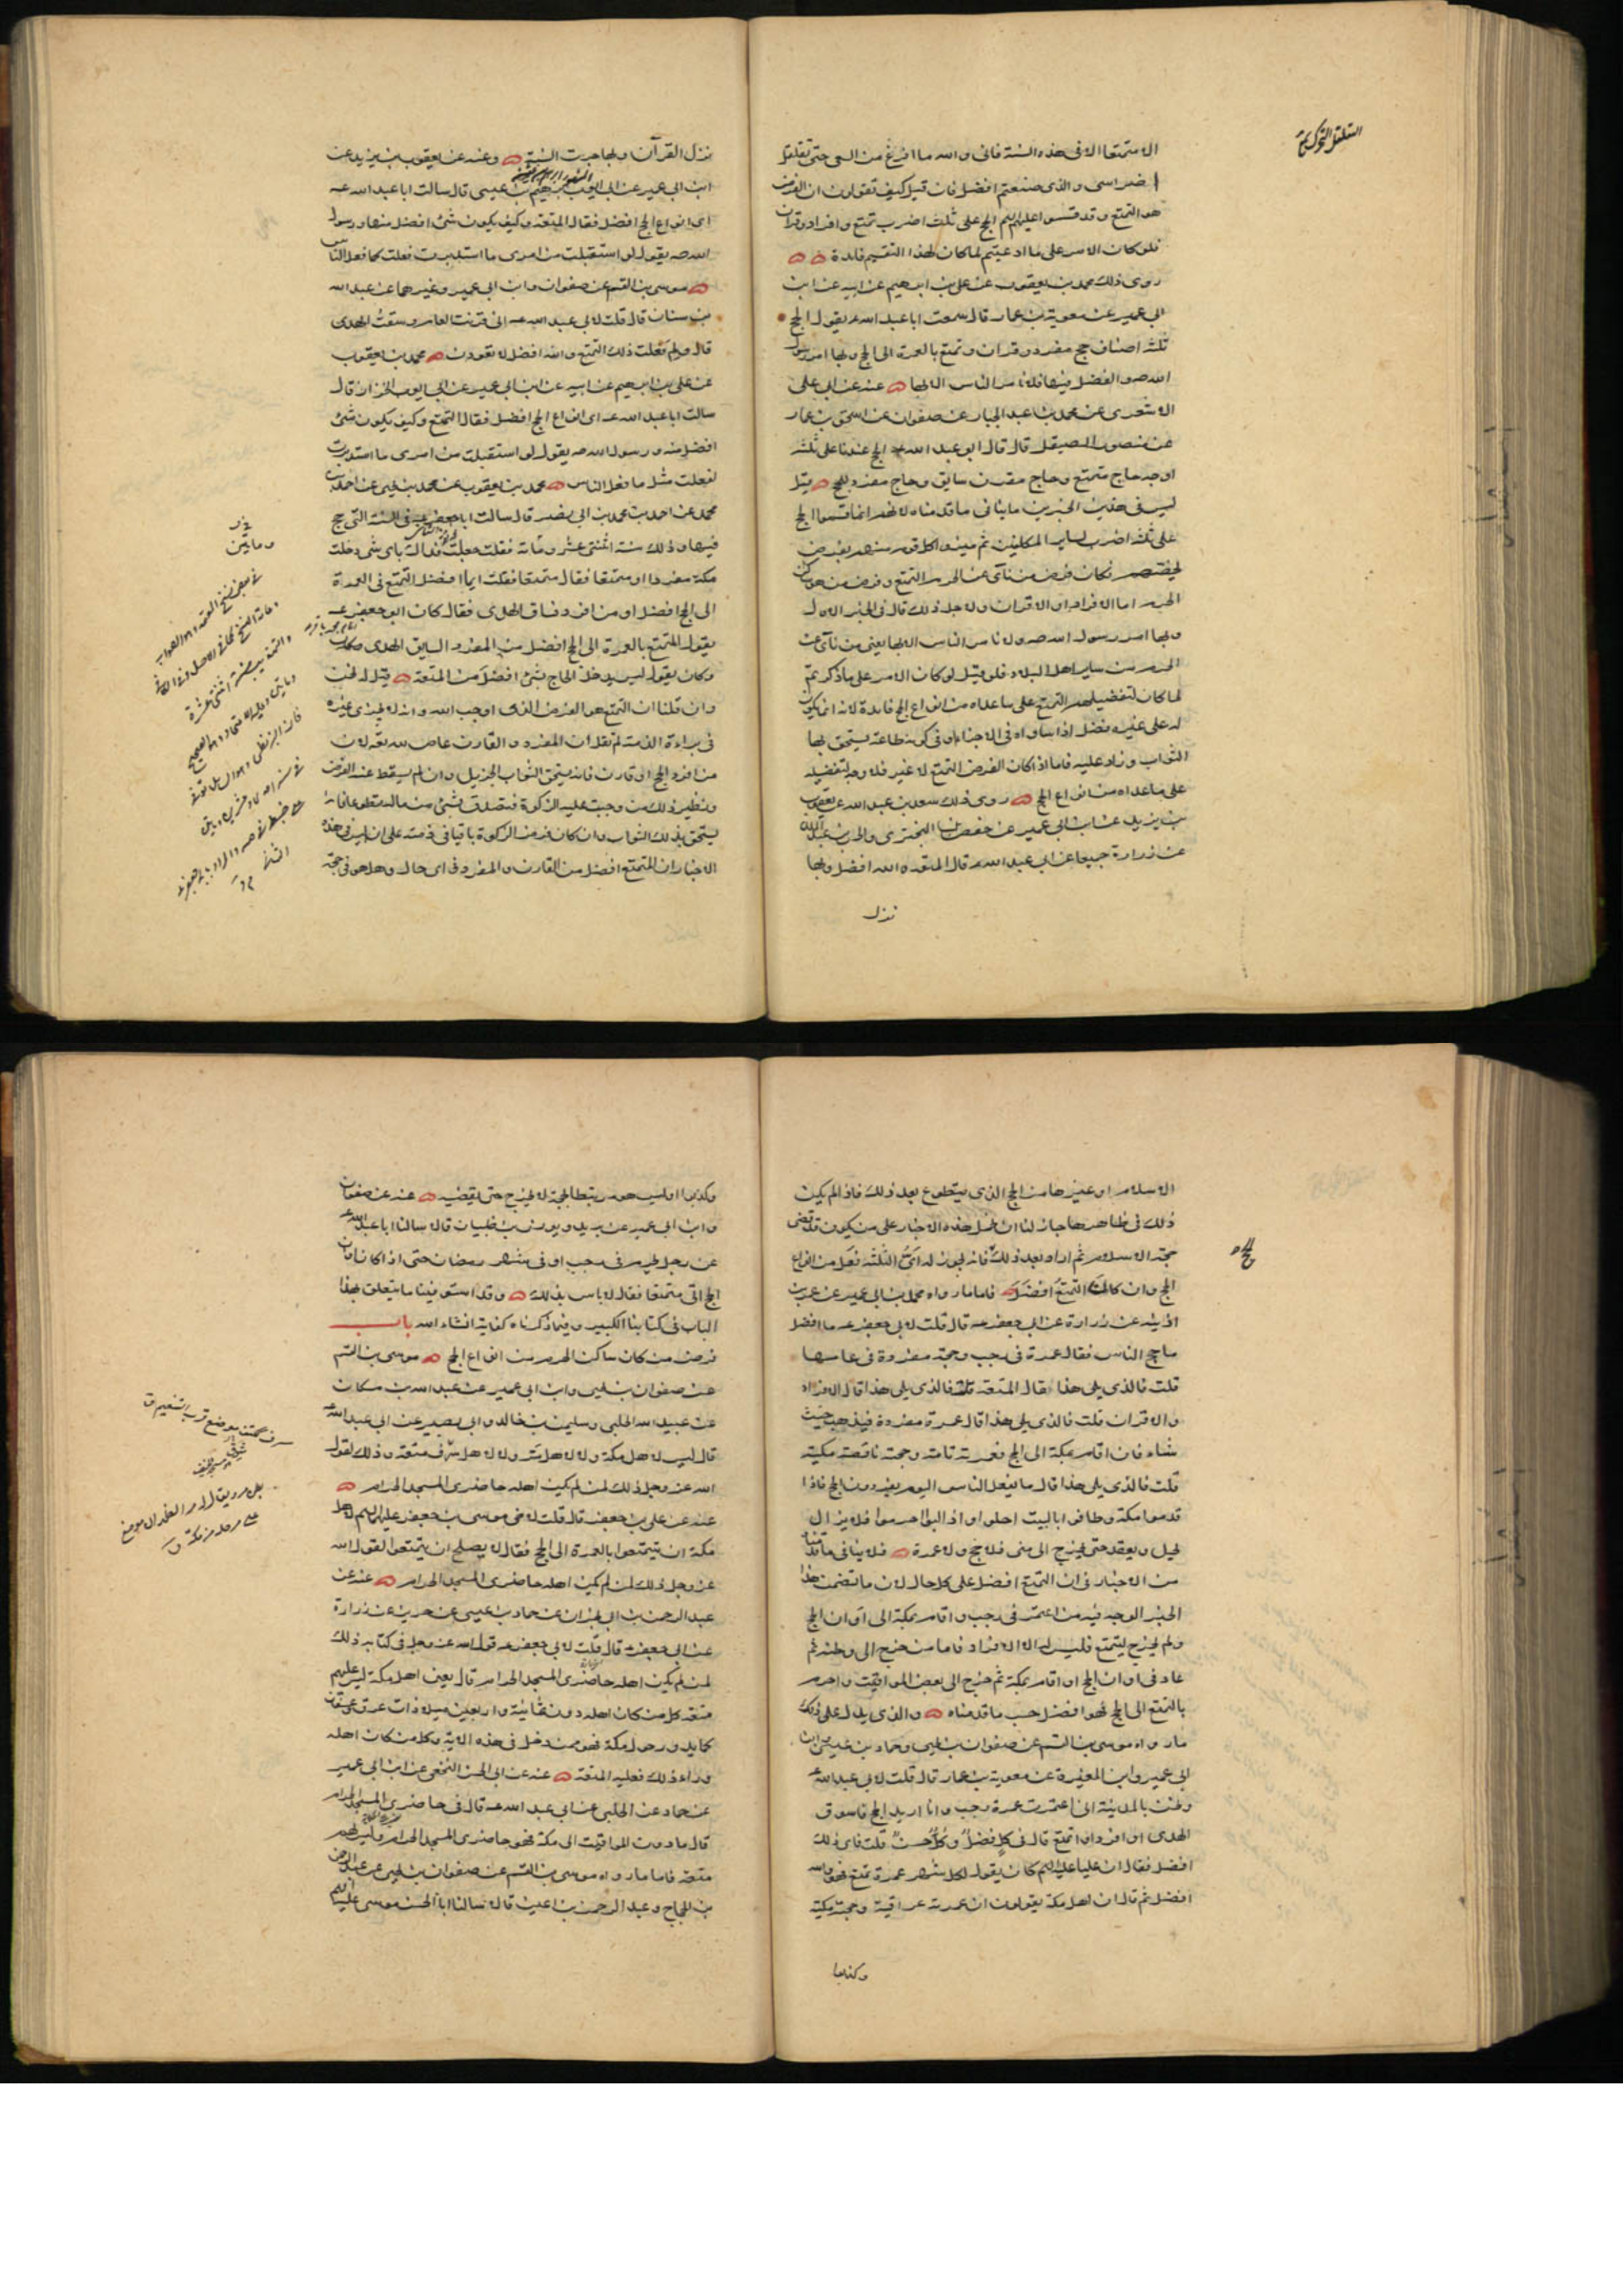 الا متمتعا الا فى هذه السنة فانى والله ما افرغ من السعى حتى تقلقل
اضراسى والذى صنعتم افضل فان قيل كيف تقولون ان الفرض
هو التمتع وقد قسموا عليهم السلم الحج على ثلث اضرب تمتع وافراد وقران
فلو كان الامر على ما ادعيتم لما كان لهذا التقسيم فايدة
روى ذلك محمد بن يعقوب عن على بن ابرهيم عن ابيه عن ابن
ابى عمير عن معوية بن عمار قال سمعت ابا عبد الله ع يقول الحج
ثلثة اصناف حج مفرد وقران وتمتع بالعمرة الى الحج وبها امر رسول
الله ص والفضل فيها فلا نامر الناس الا بها عنه عن ابى على
الاشعرى عن محمد بن عبد الجبار عن صفوان عن اسحق بن عمار
عن منصور الصيقل قال قال ابو عبد الله ع الحج عندنا على ثلثة
اوجه حاج متمتع وحاج مقرن سايق وحاج مفرد للحج قيل
ليس فى هذين الخبرين ما ينافى ما قدمناه لانهم انما قسموا الحج
على ثلثة اضرب لساير المكلفين ثم ميزوا كل قوم منهم بفرض
يخصهم فكان فرض من نأى عن الحرم التمتع وفرض من هو ساكن
الحرم اما الافراد او الاقران ولاجل ذلك قال فى الخبر الاول
وبها امر رسول الله ص ولا نامر الناس الا بها يعنى من نأى عن
الحرم من ساير اهل البلاد فلو قيل لو كان الامر على ما ذكرتم
لما كان لتفضيلهم التمتع على ما عداه من انواع الحج فايدة لانه انما يكون
له على غيره فضل اذا ساواه فى الاجزاء او فى كونه طاعة يستحق بها
الثواب وزاد عليه فاما اذا كان الفرض التمتع لا غير فلا وجه لتفضيله
على ما عداه من انواع الحج روى ذلك سعد بن عبد الله عن يعقوب
بن يزيد عن ابن ابى عمير عن حفص بن البخترى والحسن بن عبد الملك
عن زرارة جميعا عن ابى عبد الله ع قال المتعة والله افضل وبها
نزل
نزل القرآن وبها جرت السنة وعنه عن يعقوب بن يزيد عن
ابن ابى عمير عن ابى ايوب ابرهيم بن عيسى قال سالت ابا عبد الله ع
اى انواع الحج افضل فقال المتعة وكيف يكون شئ افضل منها ورسول
الله ص يقول لو استقبلت من امرى ما استدبرت فعلت كما فعل الناس
موسى بن القسم عن صفوان وابن ابى عمير وغيرهما عن عبد الله
بن سنان قال قلت لابى عبد الله ع انى قرنت العام وسقت الهدى
قال ولم فعلت ذلك التمتع والله افضل لا تعودن محمد بن يعقوب
عن على بن ابرهيم عن ابيه عن ابن ابى عمير عن ابى ايوب الخزاز قال
سالت ابا عبد الله ع اى انواع الحج افضل فقال التمتع وكيف يكون شئ
افضل منه ورسول الله ص يقول لو استقبلت من امرى ما استدبرت
لفعلت مثل ما فعل الناس محمد بن يعقوب عن محمد بن يحيى عن احمد بن
محمد عن احمد بن محمد بن ابى نصر قال سالت ابا جعفر ع فى السنة التى حج
فيها وذلك سنة اثنتى عشر ومأتين فقلت جعلت فداك باى شئ دخلت
مكة مفردا او متمتعا فقال متمتعا فقلت ايما افضل التمتع فى العمرة
الى الحج افضل او من افرد وساق الهدى فقال كان ابو جعفر ع
يقول المتمتع بالعمرة الى الحج افضل من المفرد السايق الهدى
وكان يقول ليس يدخل الحاج بشئ افضل من المتعة قيل له نحن
وان قلنا ان التمتع هو الفرض الذى اوجب الله وانه لا يجزى غيره
فى براءة الذمة لم نقل ان المفرد والقارن عاص لله تعالى لان
من افرد الحج او قارن فانه يستحق الثواب الجزيل وان لم يسقط عنه الفرض
ونظير ذلك من وجبت عليه الزكوة فتصدق بشئ من ماله تطوعا فانه
يستحق بذلك الثواب وان كان فرض الزكوة باقيا فى ذمته على ان ليس فى هذه
الاخبار ان المتمتع افضل من القارن والمفرد فى اى حال وهل هو فى حجة
الاسلام او غيرها من الحج الذى يتطوع بعد ذلك فاذا لم يكن
ذلك فى ظاهرها جاز لنا ان نحمل هذه الاخبار على من يكون قد قضى
حجة الاسلام ثم اراد بعد ذلك فانه يجوز له اى الثلثة فعل من انواع
الحج وان كان التمتع افضل فاما ما رواه محمد بن ابى عمير عن عمر بن
اذينه عن زرارة عن ابى جعفر ع قال قلت لابى جعفر ع ما افضل
ما حج الناس فقال عمرة فى رجب وحجة مفردة فى عامها
قلت فالذى يلى هذا قال المتعة قلت فالذى يلى هذا قال الافراد
والاقران قلت فالذى يلى هذا قال عمرة مفردة فيذهب حيث
شاء فان اقام بمكة الى الحج فعمرته تامة وحجته ناقصة مكية
قلت فالذى يلى هذا قال ما يفعل الناس اليوم يفردون الحج فاذا
قدموا مكة وطافوا بالبيت احلوا واذا لبوا احرموا فلا يزال
يحل ويعقد حتى يخرج الى منى فلا حج ولا عمرة فلا ينافى ما قدمناه
من الاخبار فى ان التمتع افضل على كل حال لان ما تضمن هذا
الخبر الوجه فيه من اعتمر فى رجب واقام بمكة الى اوان الحج
ولم يخرج ليتمتع فليس له الا الافراد فاما من خرج الى وطنه ثم
عاد فى اوان الحج او اقام بمكة ثم خرج الى بعض المواقيت واحرم
بالتمتع الى الحج فهو افضل حسب ما قدمناه والذى يدل على ذلك
ما رواه موسى بن القسم عن صفوان بن يحيى وحماد بن عيسى وابن
ابى عمير وابن المغيرة عن معوية بن عمار قال قلت لابى عبد الله ع
ونحن بالمدينة انى اعتمرت عمرة رجب وانا اريد الحج فاسوق
الهدى او افرد او اتمتع قال فى كل فضل وكل حسن قلت فاى ذلك
افضل فقال ان عليا عليه السلم كان يقول لكل شهر عمرة تمتع فهو والله
افضل ثم قال ان اهل مكة يقولون ان عمرته عراقية وحجته مكية
وكذبوا
وكذبوا اوليس هو مرتبطا بحجه لا يخرج حتى يقضيه عنه عن صفوان
وابن ابى عمير عن بريد ويونس بن ظبيان قالا سالنا ابا عبد الله ع
عن رجل يحرم فى رجب او فى شهر رمضان حتى اذا كان اوان
الحج اتى متمتعا فقال لا باس بذلك وقد استوفينا ما يتعلق بهذا
الباب فى كتابنا الكبير وفيما ذكرناه كفاية انشاء الله باب
فرض من كان ساكن الحرم من انواع الحج موسى بن القسم
عن صفوان بن يحيى وابن ابى عمير عن عبد الله بن مسكان
عن عبيد الله الحلبى وسليمن بن خالد وابى بصير عن ابى عبد الله ع
قال ليس لاهل مكة ولا لاهل مر ولا لاهل سرف متعة وذلك لقول
الله عز وجل ذلك لمن لم يكن اهله حاضرى المسجد الحرام
عنه عن على بن جعفر قال قلت لاخى موسى بن جعفر عليهم السلم لاهل
مكة ان يتمتعوا بالعمرة الى الحج فقال لا يصلح ان يتمتعوا لقول الله
عز وجل ذلك لمن لم يكن اهله حاضرى المسجد الحرام عنه عن
عبد الرحمن بن ابى نجران عن حماد بن عيسى عن حريز عن زرارة
عن ابى جعفر ع قال قلت لابى جعفر ع قول الله عز وجل فى كتابه ذلك
لمن لم يكن اهله حاضرى المسجد الحرام قال يعنى اهل مكة ليس عليهم
متعة كل من كان اهله دون ثمانية واربعين ميلا ذات عرق وعسفان
كما يدور حول مكة فهو ممن دخل فى هذه الاية وكل من كان اهله
وراء ذلك فعليه المتعة عنه عن ابى الحسن النخعى عن ابن ابى عمير
عن حماد عن الحلبى عن ابى عبد الله ع قال فى حاضرى المسجد الحرام
قال ما دون المواقيت الى مكة فهو حاضرى المسجد الحرام وليس لهم
متعة فاما ما رواه موسى بن القسم عن صفوان بن يحيى عن عبد الرحمن
بن الحجاج وعبد الرحمن بن اعين قالا سالنا ابا الحسن موسى عليه السلم